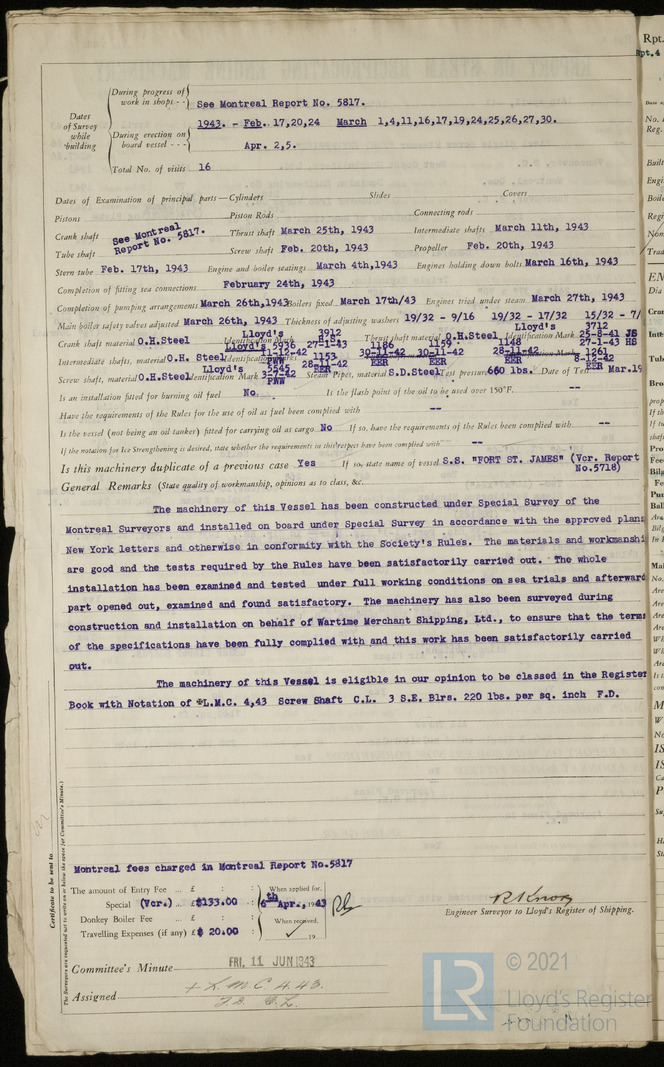 Rpt.
Rpt.4
During progress of work in shops - - See Montreal Report No. 5817.
Dates of Survey while building
1943. - Feb. 17,20,24 March 1,4,11,16,17,19,24,25,26,27,30.
During erection on board vessel - - -
Apr. 2,5.
Total No. of visits 16
Dates of Examination of principal parts—Cylinders Slides Covers
Pistons Piston Rods Connecting rods
Crank shaft See Montreal Report No. 5817. Thrust shaft March 25th, 1943 Intermediate shafts March 11th, 1943
Tube shaft Screw shaft Feb. 20th, 1943 Propeller Feb. 20th, 1943
Stern tube Feb. 17th, 1943 Engine and boiler seatings March 4th,1943 Engines holding down bolts March 16th, 1943
Completion of fitting sea connections February 24th, 1943
Completion of pumping arrangements March 26th,1943 Boilers fixed March 17th/43 Engines tried under steam March 27th, 1943
Main boiler safety valves adjusted March 26th, 1943 Thickness of adjusting washers 19/32 - 9/16 19/32 - 17/32 15/32 - 7/
Lloyd's 3912 Lloyd's 3712
Crank shaft material O.H.Steel Identification Mark 27-1-43 H.S. Thrust shaft material O.H.Steel Identification Mark 25-8-41 JS
Lloyd's 5936 1186 1159 1148 27-1-43 HS
Intermediate shafts, material O.H. Steel Identification 11-12-42 PWW 1153 28-11-42 EER 30-11-42 EER 30-11-42 EER 28-11-42 EER Mark 1261 8-12-42 EER
Screw shaft, material O.H.Steel Identification Mark Lloyd's 5545 3-7-42 PWW Steam Pipes, material S.D.Steel Test pressure 660 lbs. Date of Test Mar.19
Is an installation fitted for burning oil fuel No. Is the flash point of the oil to be used over 150°F. --
Have the requirements of the Rules for the use of oil as fuel been complied with --
Is the vessel (not being an oil tanker) fitted for carrying oil as cargo No If so, have the requirements of the Rules been complied with --
If the notation for Ice Strengthening is desired, state whether the requirements in this respect have been complied with --
Is this machinery duplicate of a previous case Yes If so, state name of vessel S.S. "FORT ST. JAMES" (Vcr. Report No.5718)
General Remarks (State quality of workmanship, opinions as to class, &c.
The machinery of this Vessel has been constructed under Special Survey of the
Montreal Surveyors and installed on board under Special Survey in accordance with the approved plans
New York letters and otherwise in conformity with the Society's Rules. The materials and workmanshi
are good and the tests required by the Rules have been satisfactorily carried out. The whole
installation has been examined and tested under full working conditions on sea trials and afterward
part opened out, examined and found satisfactory. The machinery has also been surveyed during
construction and installation on behalf of Wartime Merchant Shipping, Ltd., to ensure that the terms
of the specifications have been fully complied with and this work has been satisfactorily carried
out.
The machinery of this Vessel is eligible in our opinion to be classed in the Register
Book with Notation of ✠L.M.C. 4,43 Screw Shaft C.L. 3 S.E. Blrs. 220 lbs. per sq. inch F.D.
Certificate to be sent to
The Surveyors are requested not to write on or below the space for Committee's Minute.
Montreal fees charged in Montreal Report No.5817
The amount of Entry Fee ... £ : : When applied for,
Special (Vcr.) ... £ $133.00 : 6th Apr., 1943
Donkey Boiler Fee ... £ : : When received,
Travelling Expenses (if any) £ $ 20.00 : 19
R Knox
Engineer Surveyor to Lloyd's Register of Shipping.
Committee's Minute FRI. 11 JUN 1943
Assigned + L.M.C. 4.43.
F.D. C.L.
LR
© 2021
Lloyd's Register
Foundation